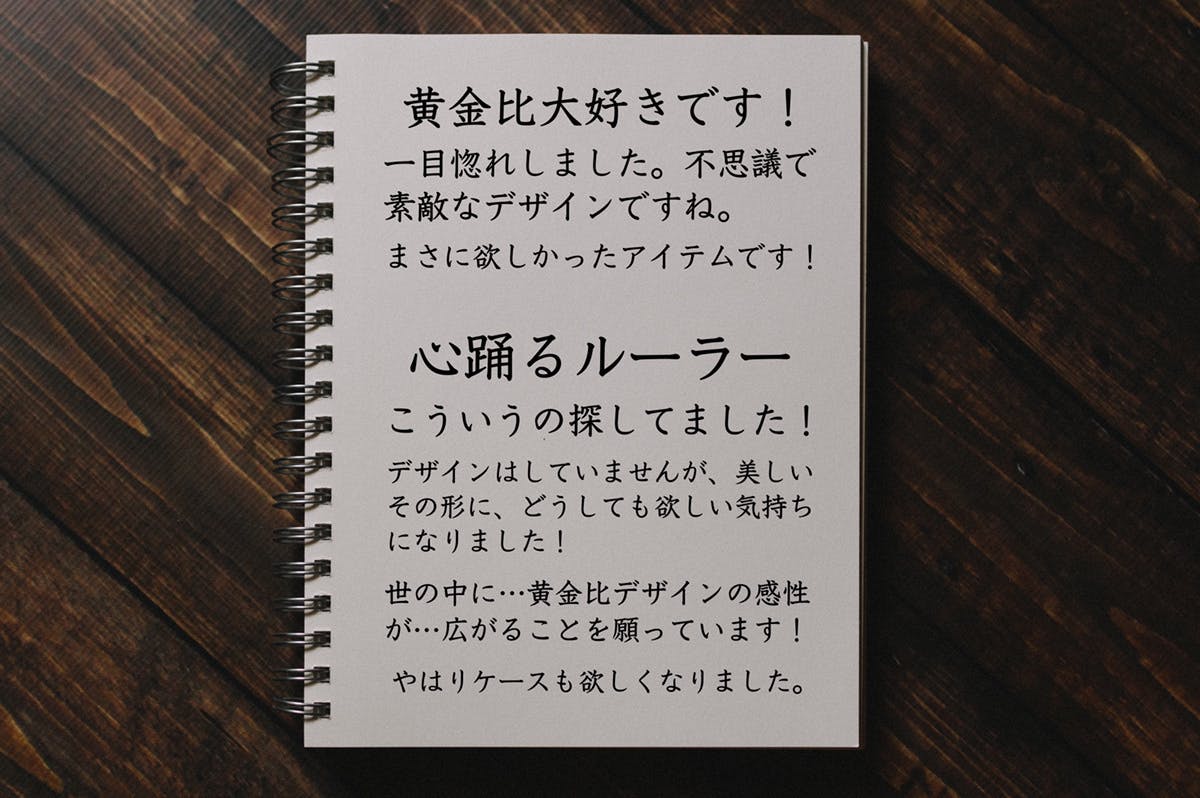 黄金比大好きです！
一目惚れしました。不思議で
素敵なデザインですね。
まさに欲しかったアイテムです！
心踊るルーラー
こういうの探してました！
デザインはしていませんが、美しい
その形に、どうしても欲しい気持ち
になりました！
世の中に…黄金比デザインの感性
が…広がることを願っています！
やはりケースも欲しくなりました。